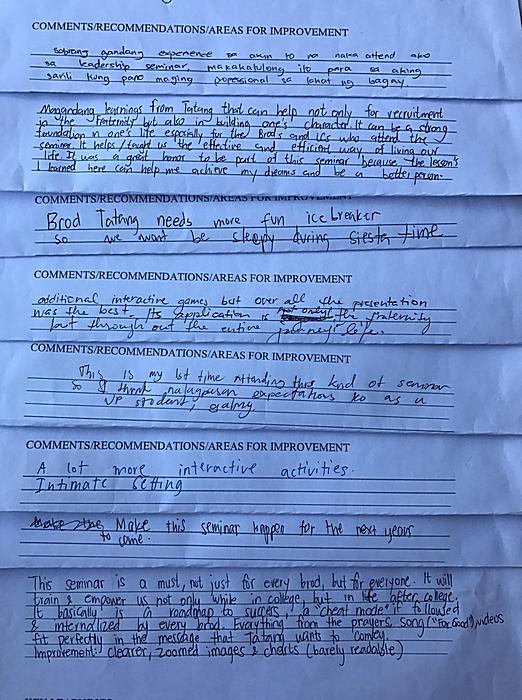 COMMENTS/RECOMMENDATIONS/AREAS FOR IMPROVEMENT
Sobrang gandang experience sa akin to na naka attend ako
sa leadership seminar, makakatulong ito para sa aking
sarili kung pano maging popessional sa lahat ng bagay.
Magandang learnings from Tatang that can help not only for recruitment
in the fraternity but also in building one's character. It can be a strong
foundation in one's life especially for the Brods and ICs who attend the
seminar. It helps/taught us the effective and efficient way of living our
life. It was a great honor to be part of this seminar because the lesson's
I learned here can help me achieve my dreams and be a better person.
COMMENTS/RECOMMENDATIONS/AREAS FOR IMPROVEMENT
Brod Tatang needs more fun ice breaker
so we wont be sleepy during siesta time
COMMENTS/RECOMMENDATIONS/AREAS FOR IMPROVEMENT
additional interactive games but over all the presentation
was the best. Its application is not only the fraternity
but through out the entire journey life.
COMMENTS/RECOMMENDATIONS/AREAS FOR IMPROVEMENT
This is my 1st time attending this kind of seminar
so I think nalagpasan expectations ko as a
UP student,
COMMENTS/RECOMMENDATIONS/AREAS FOR IMPROVEMENT
A lot more interactive activities.
Intimate Setting
Make this seminar happen for the next years
to come.
This seminar is a must, not just for every brod, but for everyone. It will
train & empower us not only while in college, but in life after college.
It basically is a roadmap to success, a "cheat mode" if followed
& internalized by every brod. Everything from the prayers, song ("For Good"), videos
fit perfectly in the message that Tatang wants to convey.
Improvement: clearer, zoomed images & charts (barely readable)